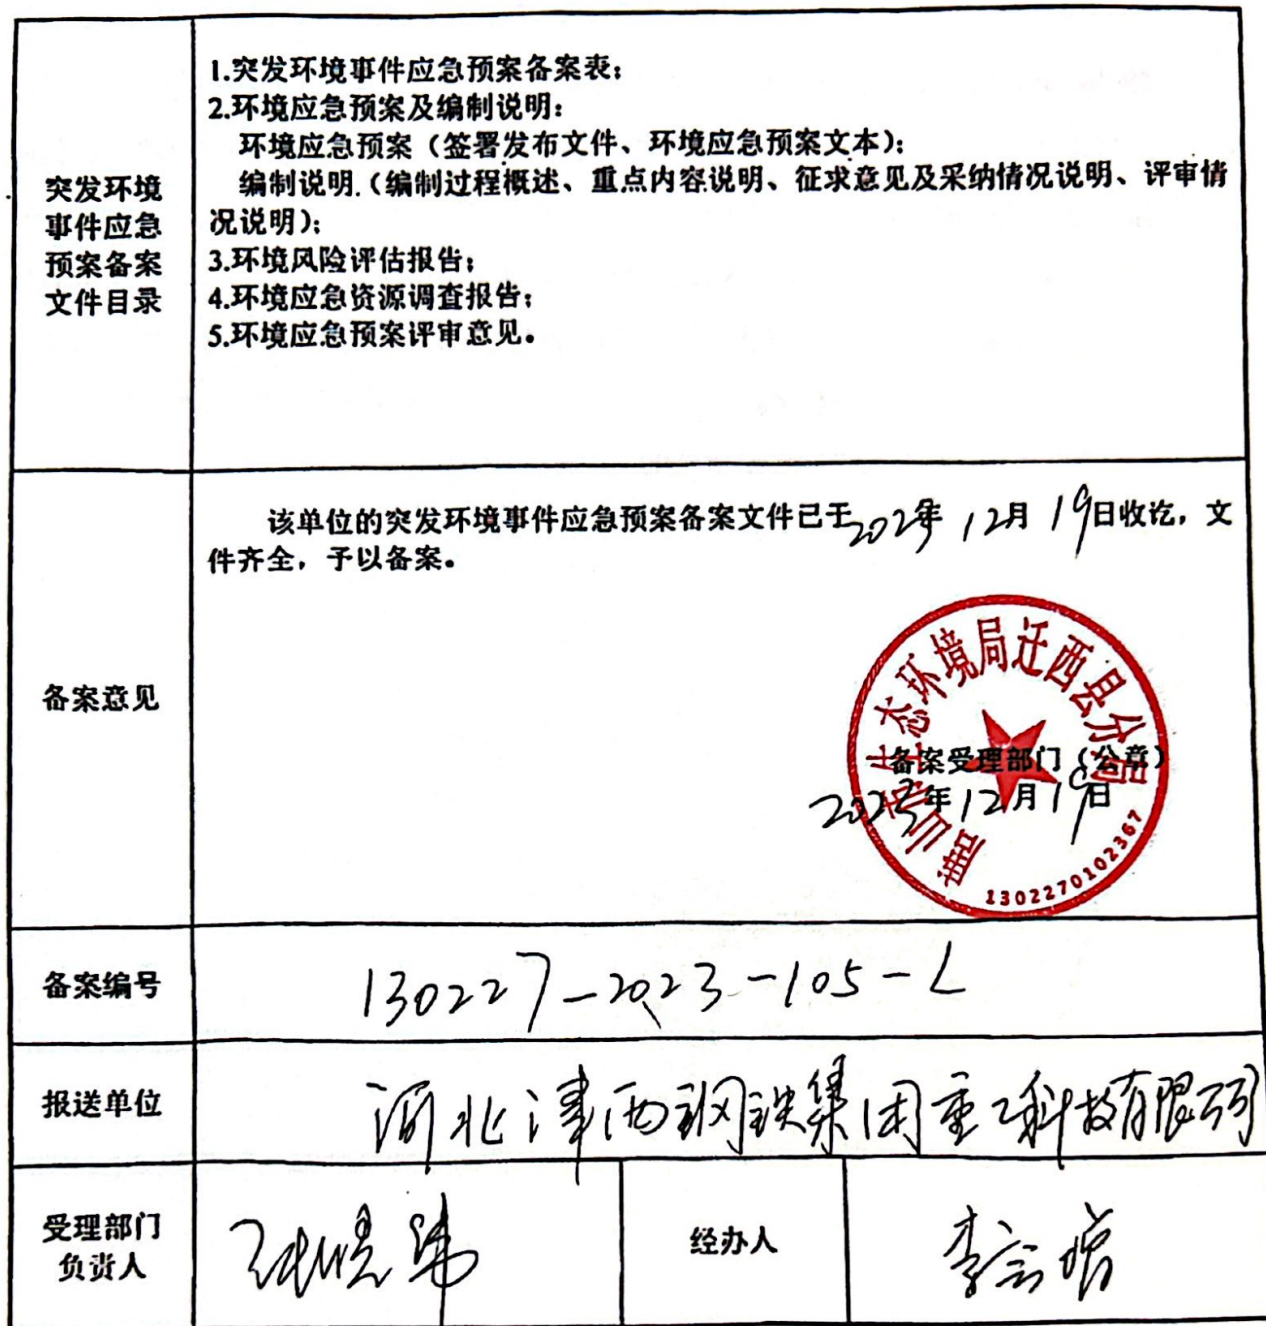 突发环境
事件应急
预案备案
文件目录
1.突发环境事件应急预案备案表;
2.环境应急预案及编制说明:
环境应急预案(签署发布文件、环境应急预案文本);
编制说明(编制过程概述、重点内容说明、征求意见及采纳情况说明、评审情
况说明);
3.环境风险评估报告;
4.环境应急资源调查报告;
5.环境应急预案评审意见。
备案意见
该单位的突发环境事件应急预案备案文件已于2023年12月19日收讫,文
件齐全,予以备案。
唐山市生态环境局迁西县分局
备案受理部门(公章)
2023年12月19日
1302270102367
备案编号
130227-2023-105-L
报送单位
河北津西钢铁集团重工科技有限公司
受理部门
负责人
经办人